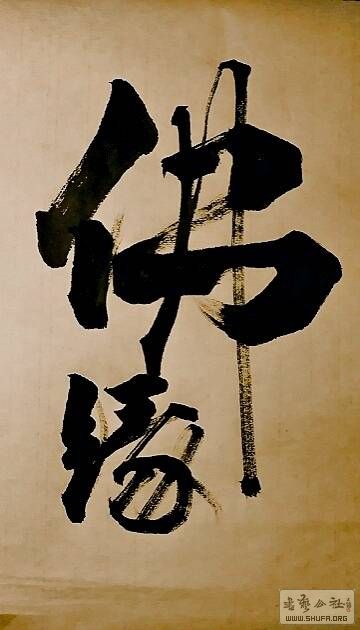 佛
缘
书艺公社
WWW.SHUFA.ORG